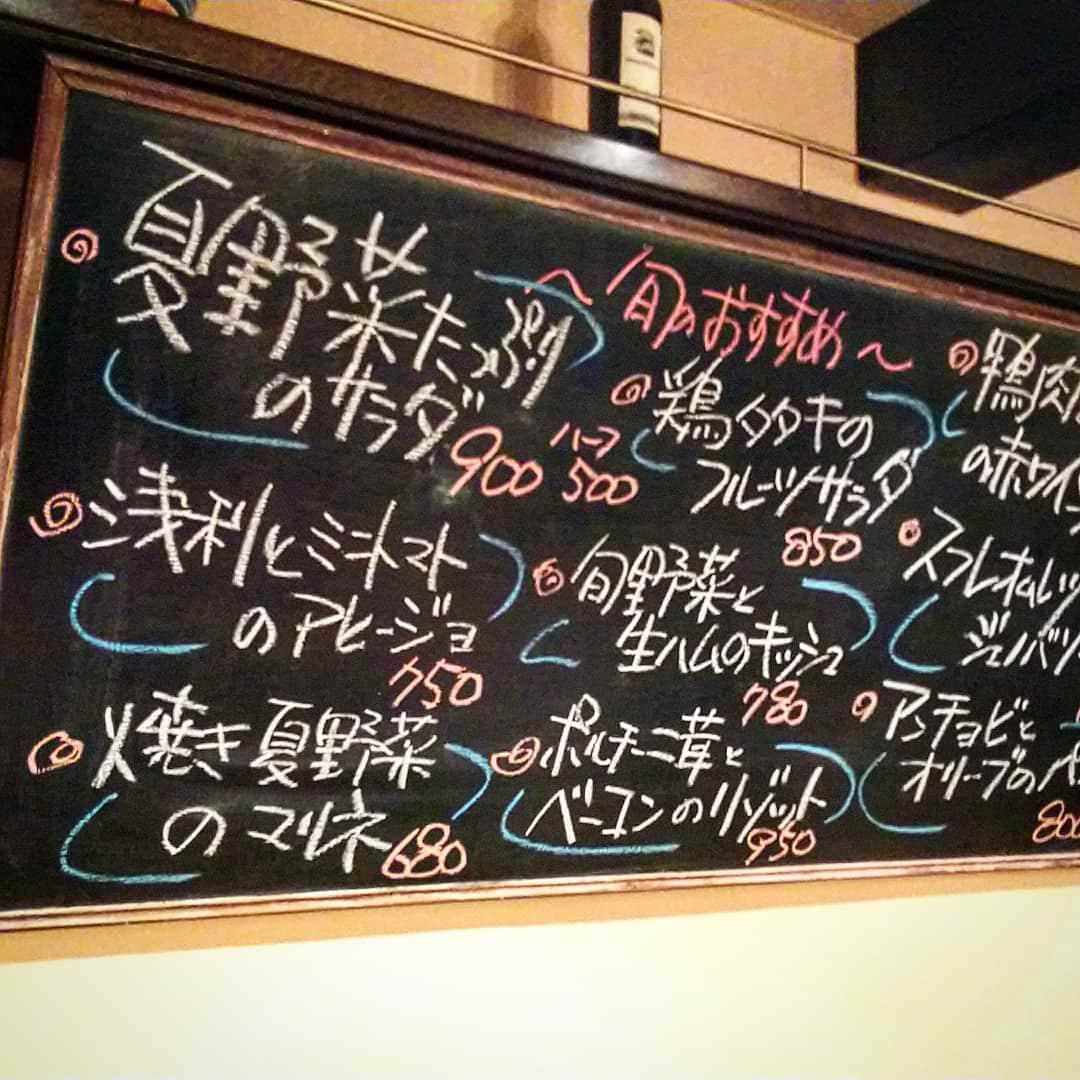 夏野菜たっぷり
のサラダ
900 ハーフ 500
浅利とミニトマト
のアヒージョ
750
焼き夏野菜
のマリネ
680
〜旬のおすすめ〜
鶏タタキの
フルーツサラダ
850
旬野菜と
生ハムのキッシュ
780
ポルチーニ茸と
ベーコンのリゾット
950
鴨肉
の赤ワイン
スフレオムレツ
ジェノバソー
アンチョビと
オリーブの
800